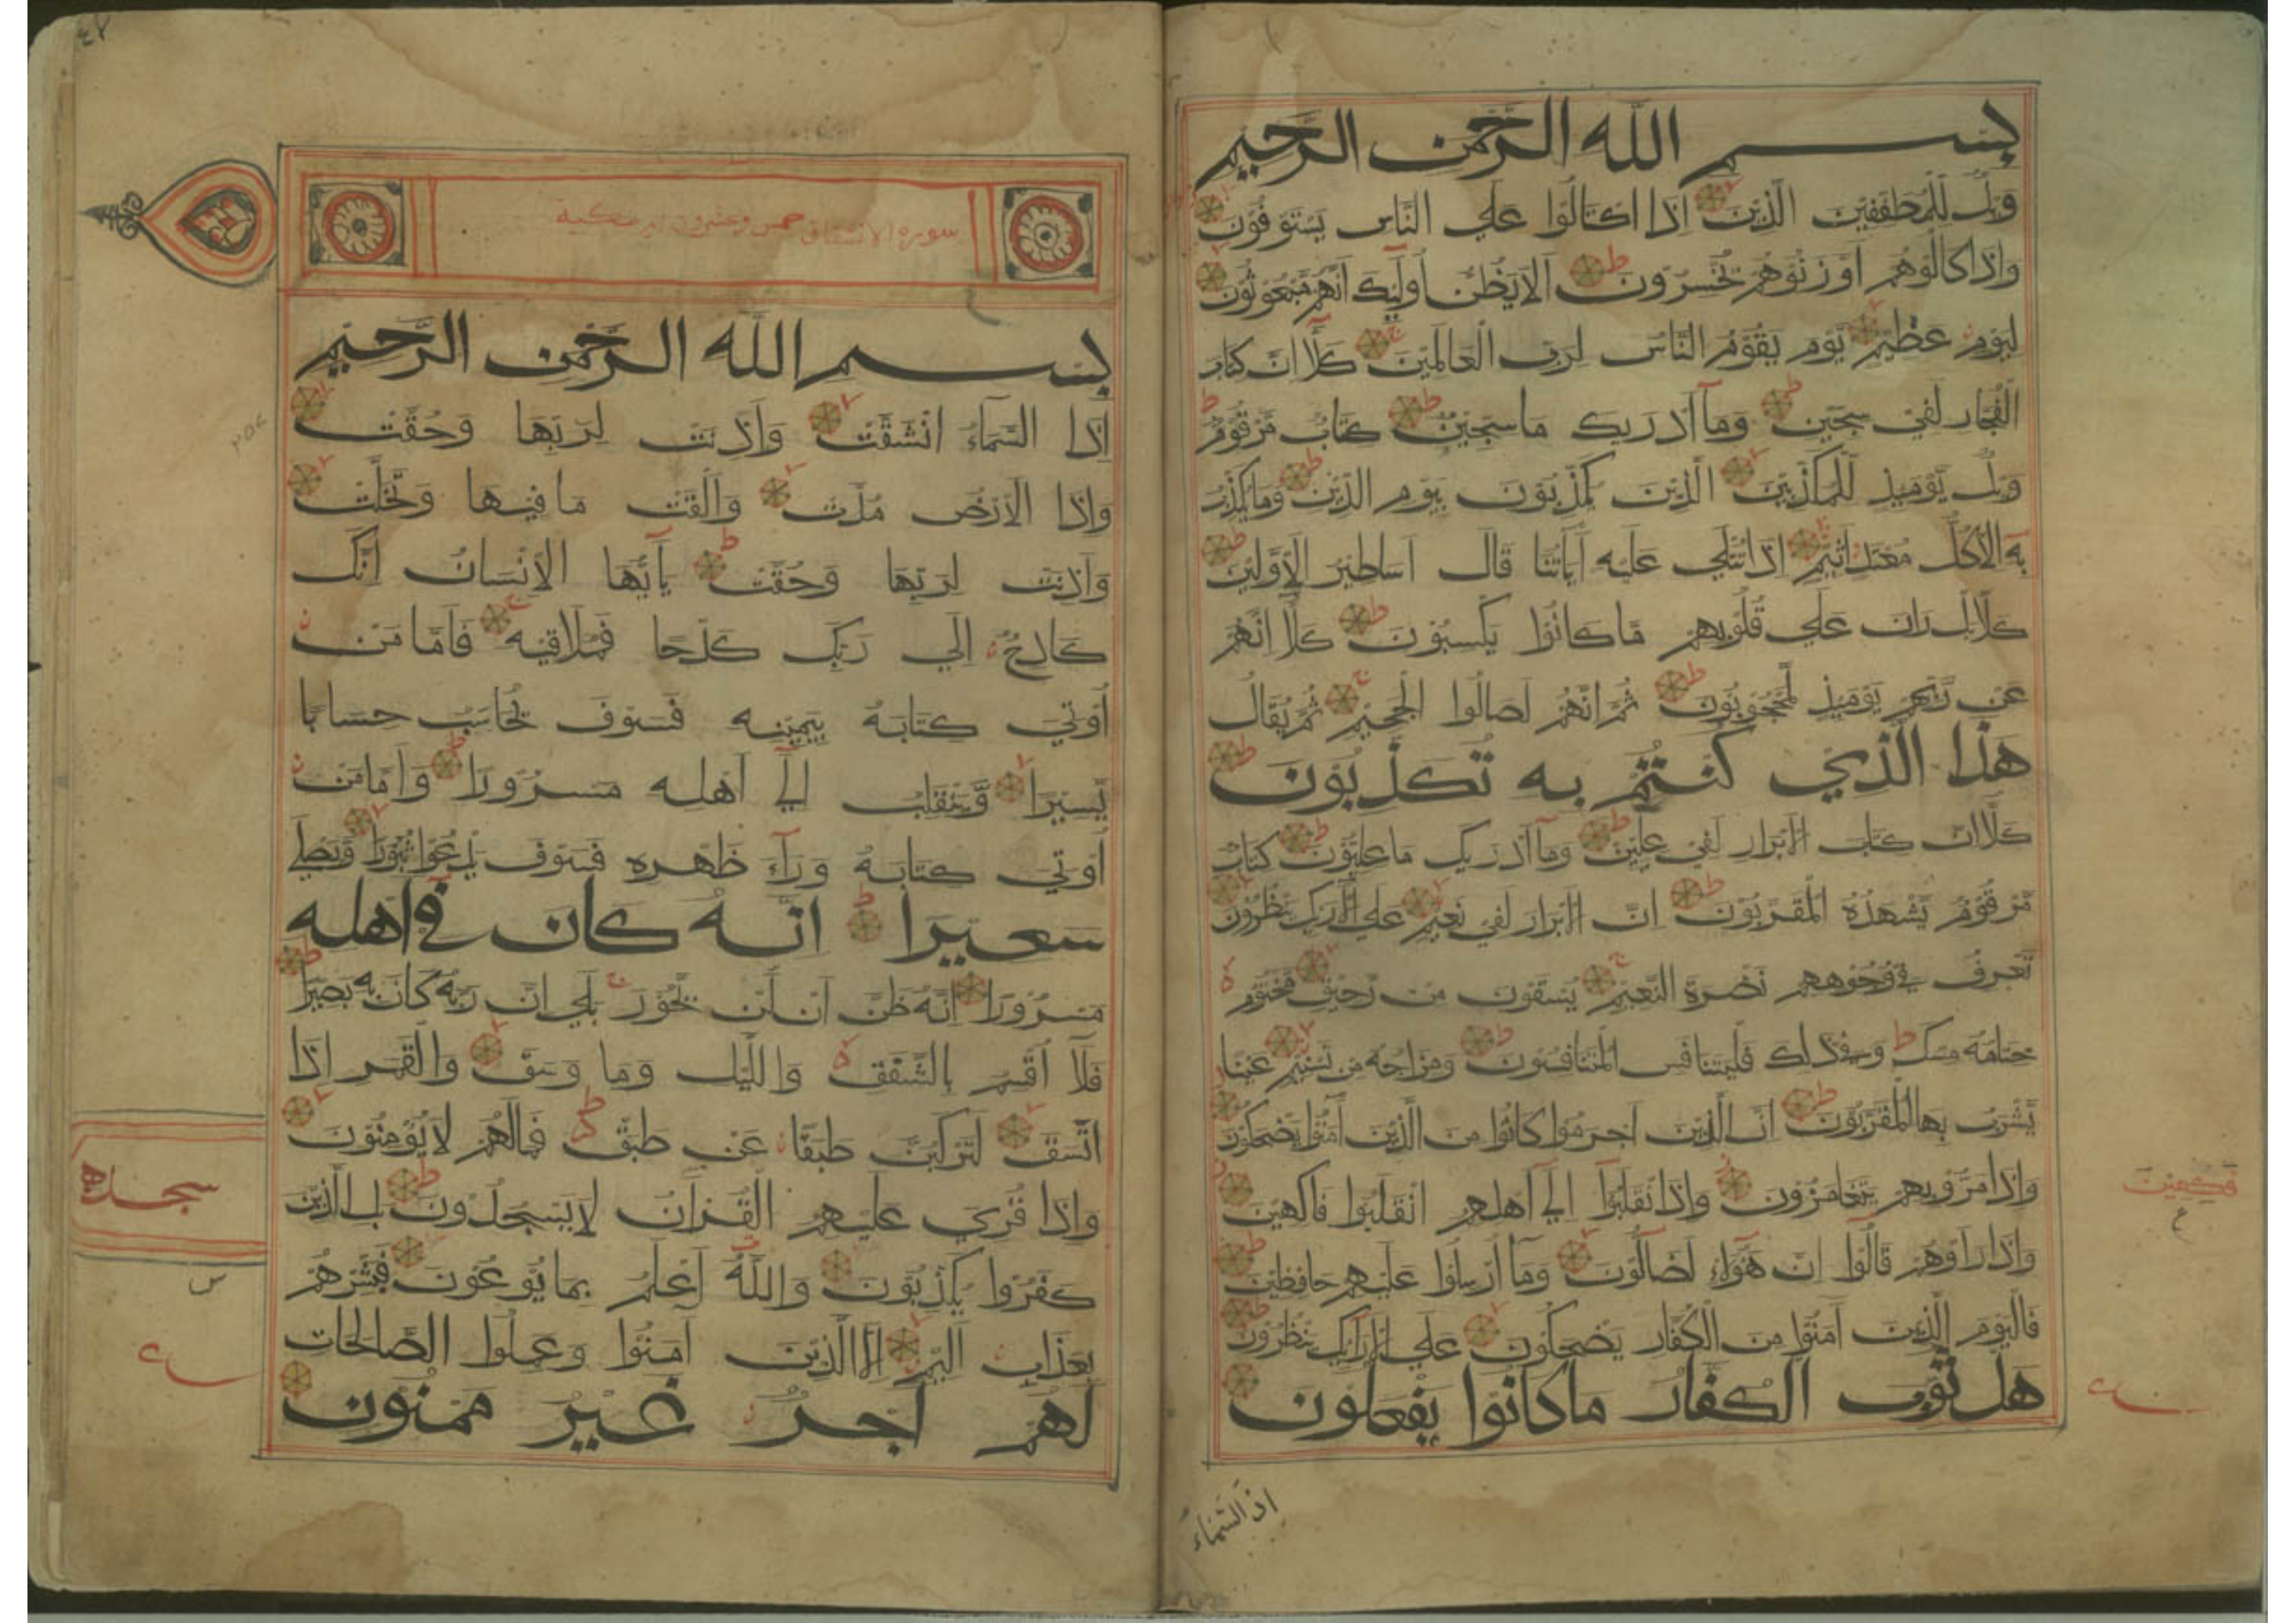 بسم الله الرحمن الرحيم
ويل للمطففين الذين اذا اكتالوا علي الناس يستوفون
واذا كالوهم او وزنوهم يخسرون الا يظن اولئك انهم مبعوثون
ليوم عظيم يوم يقوم الناس لرب العالمين كلا ان كتاب
الفجار لفي سجين وما ادريك ما سجين كتاب مرقوم
ويل يومئذ للمكذبين الذين يكذبون بيوم الدين وما يكذب
به الا كل معتد اثيم اذا تتلي عليه اياتنا قال اساطير الاولين
كلا بل ران علي قلوبهم ما كانوا يكسبون كلا انهم
عن ربهم يومئذ لمحجوبون ثم انهم لصالوا الجحيم ثم يقال
هذا الذي كنتم به تكذبون
كلا ان كتاب الابرار لفي عليين وما ادريك ما عليون كتاب
مرقوم يشهده المقربون ان الابرار لفي نعيم علي الارائك ينظرون
تعرف في وجوههم نضرة النعيم يسقون من رحيق مختوم
ختامه مسك وفي ذلك فليتنافس المتنافسون ومزاجه من تسنيم عينا
يشرب بها المقربون ان الذين اجرموا كانوا من الذين آمنوا يضحكون
واذا مروا بهم يتغامزون واذا انقلبوا الي اهلهم انقلبوا فاكهين
فكهين
ع
واذا راوهم قالوا ان هؤلاء لضالون وما ارسلوا عليهم حافظين
فاليوم الذين آمنوا من الكفار يضحكون علي الارائك ينظرون
هل ثوب الكفار ما كانوا يفعلون
اذا السماء
سورة الانشقاق خمس وعشرون اية مكية
بسم الله الرحمن الرحيم
اذا السماء انشقت واذنت لربها وحقت
واذا الارض مدت والقت ما فيها وتخلت
واذنت لربها وحقت يا ايها الانسان انك
كادح الي ربك كدحا فملاقيه فاما من
اوتي كتابه بيمينه فسوف يحاسب حسابا
يسيرا وينقلب الي اهله مسرورا واما من
اوتي كتابه وراء ظهره فسوف يدعوا ثبورا ويصلي
سعيرا انه كان في اهله
مسرورا انه ظن ان لن يحور بلي ان ربه كان به بصيرا
فلا اقسم بالشفق والليل وما وسق والقمر اذا
اتسق لتركبن طبقا عن طبق فما لهم لا يؤمنون
واذا قرئ عليهم القرآن لا يسجدون بل الذين
سجده
كفروا يكذبون والله اعلم بما يوعون فبشرهم
بعذاب اليم الا الذين آمنوا وعملوا الصالحات
لهم اجر غير ممنون